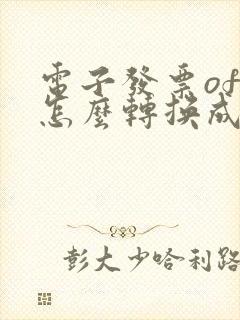 電子發票of
怎麼轉換成
彭大少哈利路